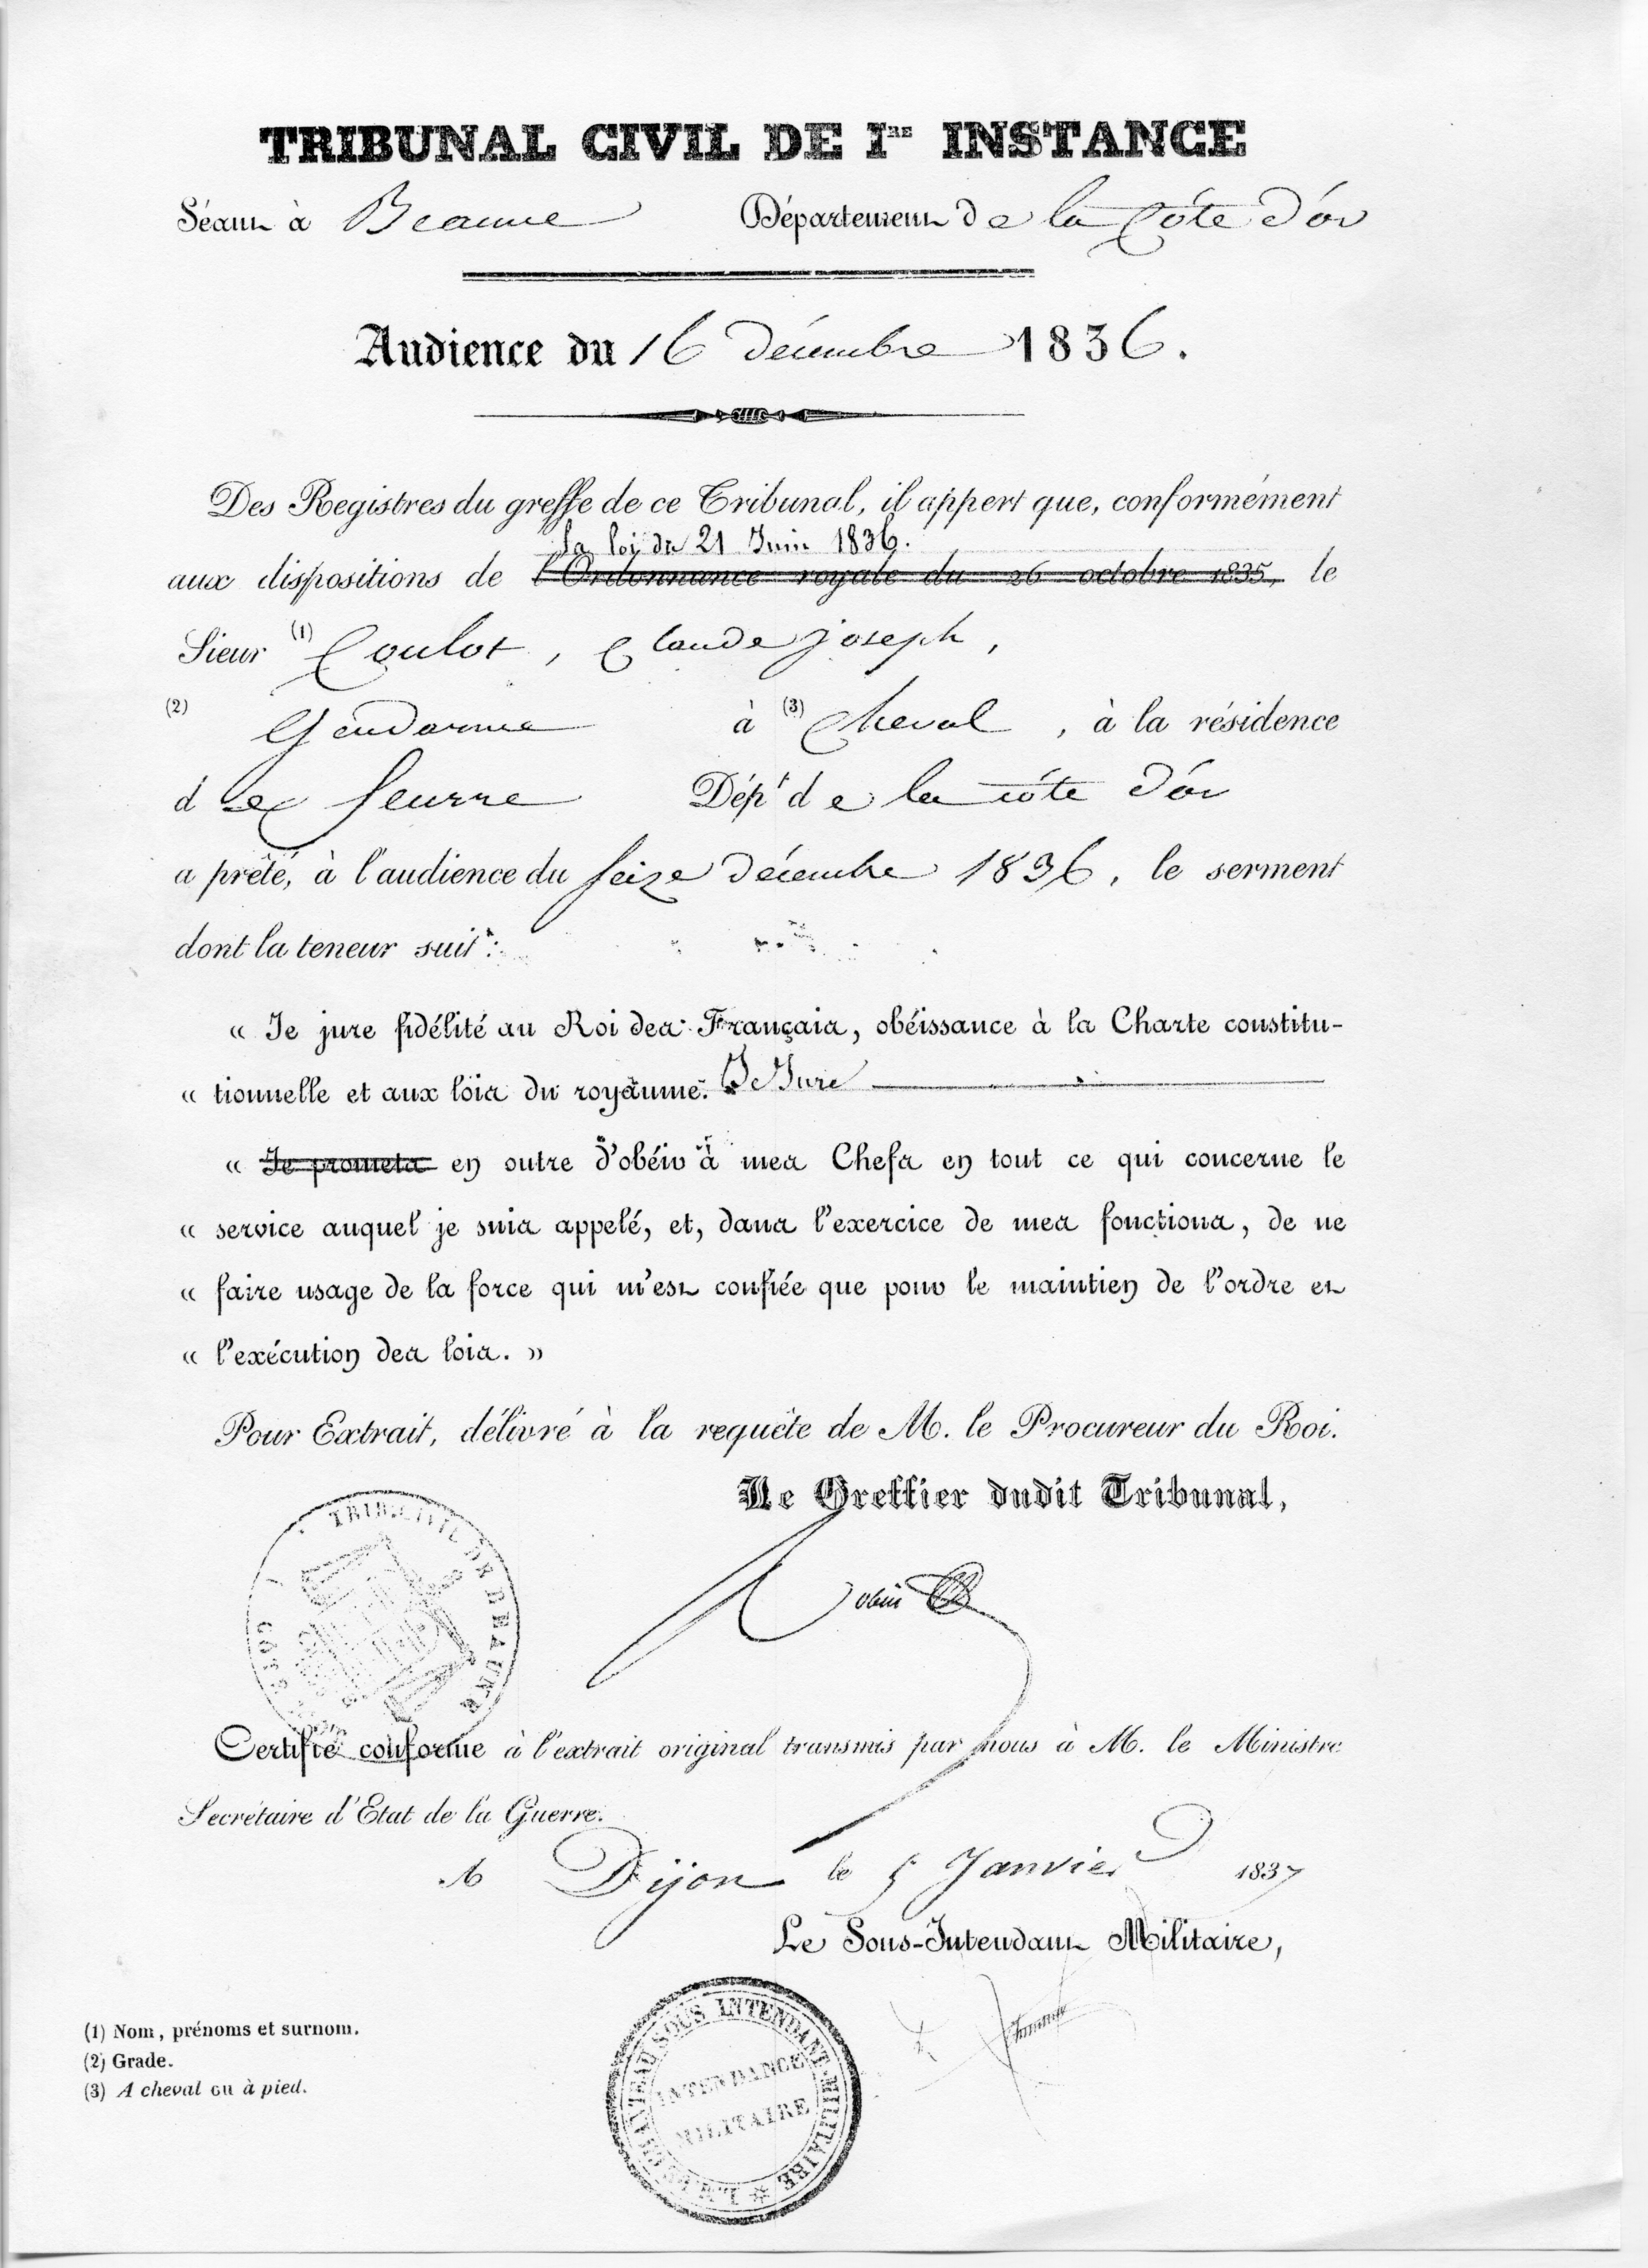 TRIBUNAL CIVIL DE Ire INSTANCE
Séant à Beaune Département de la Côte d'or
Audience du 16 décembre 1836.
Des Registres du greffe de ce Tribunal, il appert que, conformément
la loi du 21 Juin 1836.
aux dispositions de l'Ordonnance royale du 26 octobre 1835, le
Sieur (1) Coulot, Claude joseph,
(2) Gendarme à (3) Cheval, à la résidence
d e Seurre Dépt de la côte d'or
a prêté, à l'audience du seize décembre 1836, le serment
dont la teneur suit :
« Je jure fidélité au Roi des Français, obéissance à la Charte constitu-
« tionnelle et aux lois du royaume. Je Jure
« Je promets en outre d'obéir à mes Chefs en tout ce qui concerne le
« service auquel je suis appelé, et, dans l'exercice de mes fonctions, de ne
« faire usage de la force qui m'est confiée que pour le maintien de l'ordre et
« l'exécution des lois. »
Pour Extrait, délivré à la requête de M. le Procureur du Roi.
Le Greffier dudit Tribunal,
TRIB. CIVIL DE BEAUNE
Certifié conforme à l'extrait original transmis par nous à M. le Ministre
Secrétaire d'Etat de la Guerre.
A Dijon le 5 Janvier 1837
Le Sous-Intendant Militaire,
SOUS INTENDANT MILITAIRE
INTENDANCE
MILITAIRE
(1) Nom, prénoms et surnom.
(2) Grade.
(3) A cheval ou à pied.